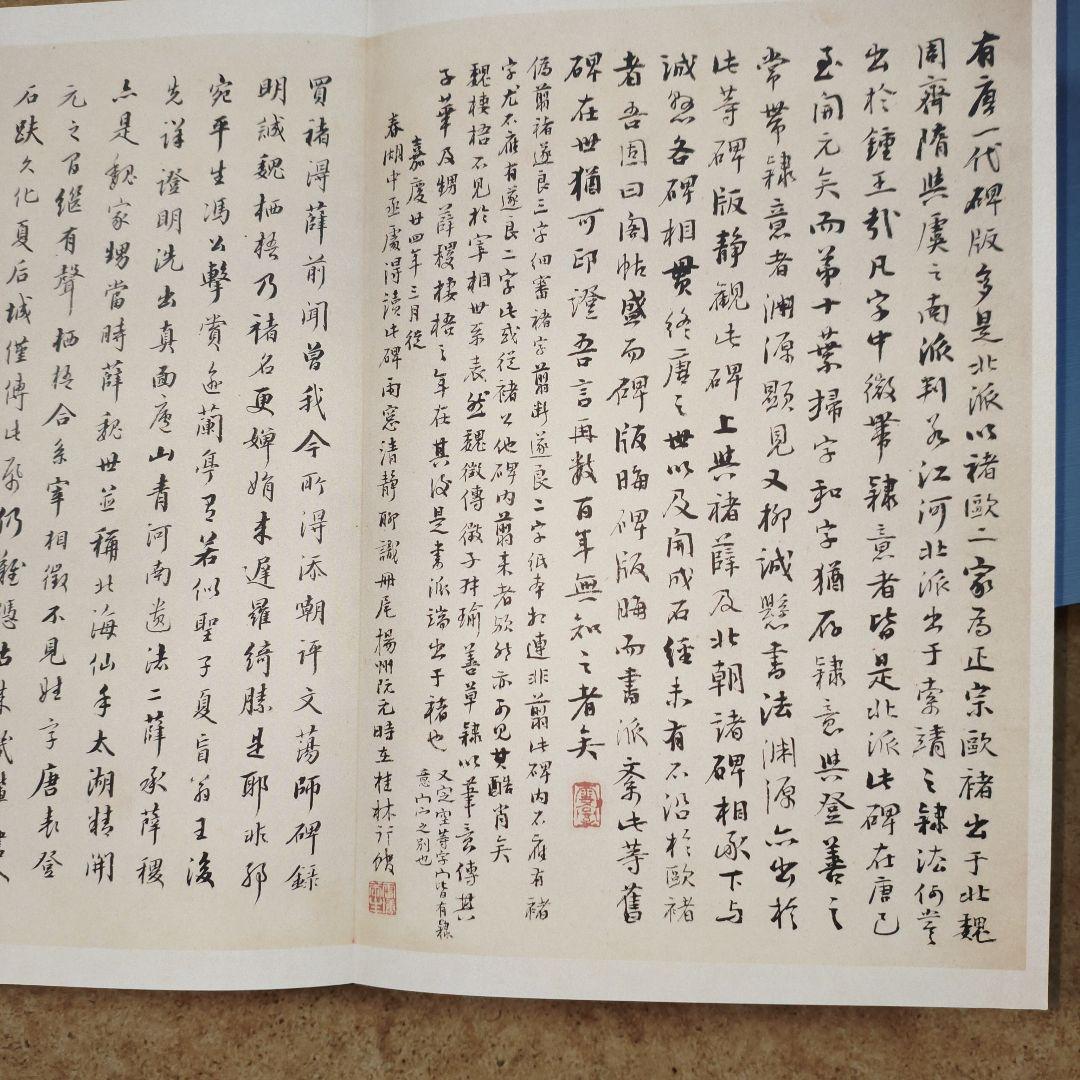 有唐一代碑版多是北派以褚歐二家為正宗歐褚出于北魏
周齊隋與虞之南派判若江河北派出于索靖之隸法何嘗
出於鍾王哉凡字中微帶隸意者皆是北派此碑在唐已
至開元矣而第十葉掃字和字猶存隸意與登善之
常帶隸意者淵源顯見又柳誠懸書法淵源亦出於
此等碑版靜觀此碑上與褚薛及北朝諸碑相承下与
誠懸各碑相貫終唐之世以及開成石經未有不沿於歐褚
者吾固曰閣帖盛而碑版晦碑版晦而書派紊此等舊
碑在世猶可印證吾言再數百年無知之者矣
偽翦褚遂良三字細審褚字翦斷遂良二字紙本相連非翦此碑內不應有褚
字尤不應有遂良二字此或從褚公他碑內翦来者然亦可見其酷肖矣
魏棲梧不見於宰相世系表然魏徵傳徵子叔瑜善草隸以筆意傳其
子華及甥薛稷棲梧之年在其後是書派端出于褚也
又定空等字宀皆有隸
意宀之別也
嘉慶廿四年三月從
春湖中丞處得讀此碑雨窓清静聊識冊尾揚州阮元時在桂林行館
買褚得薛前聞曾我今所得添嘲評文蕩師碑錄
明誠魏栖梧乃褚名更嬋娟来遲羅綺勝是耶非邪
宛平生馮公擊賞逾蘭亭有若似聖子夏盲翁王後
先詳證明洗出真面廬山青河南遺法二薛承薛稷
亦是魏家甥當時薛魏世並稱北海仙手太湖精開
元之間繼有聲栖梧合系宰相徵不見姓字唐表登
石趺久化夏后城僅傳此